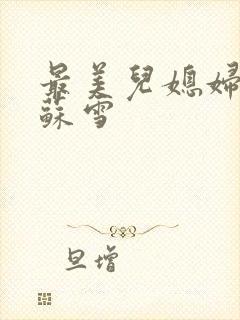 最美兒媳婦
蘇雪
旦增